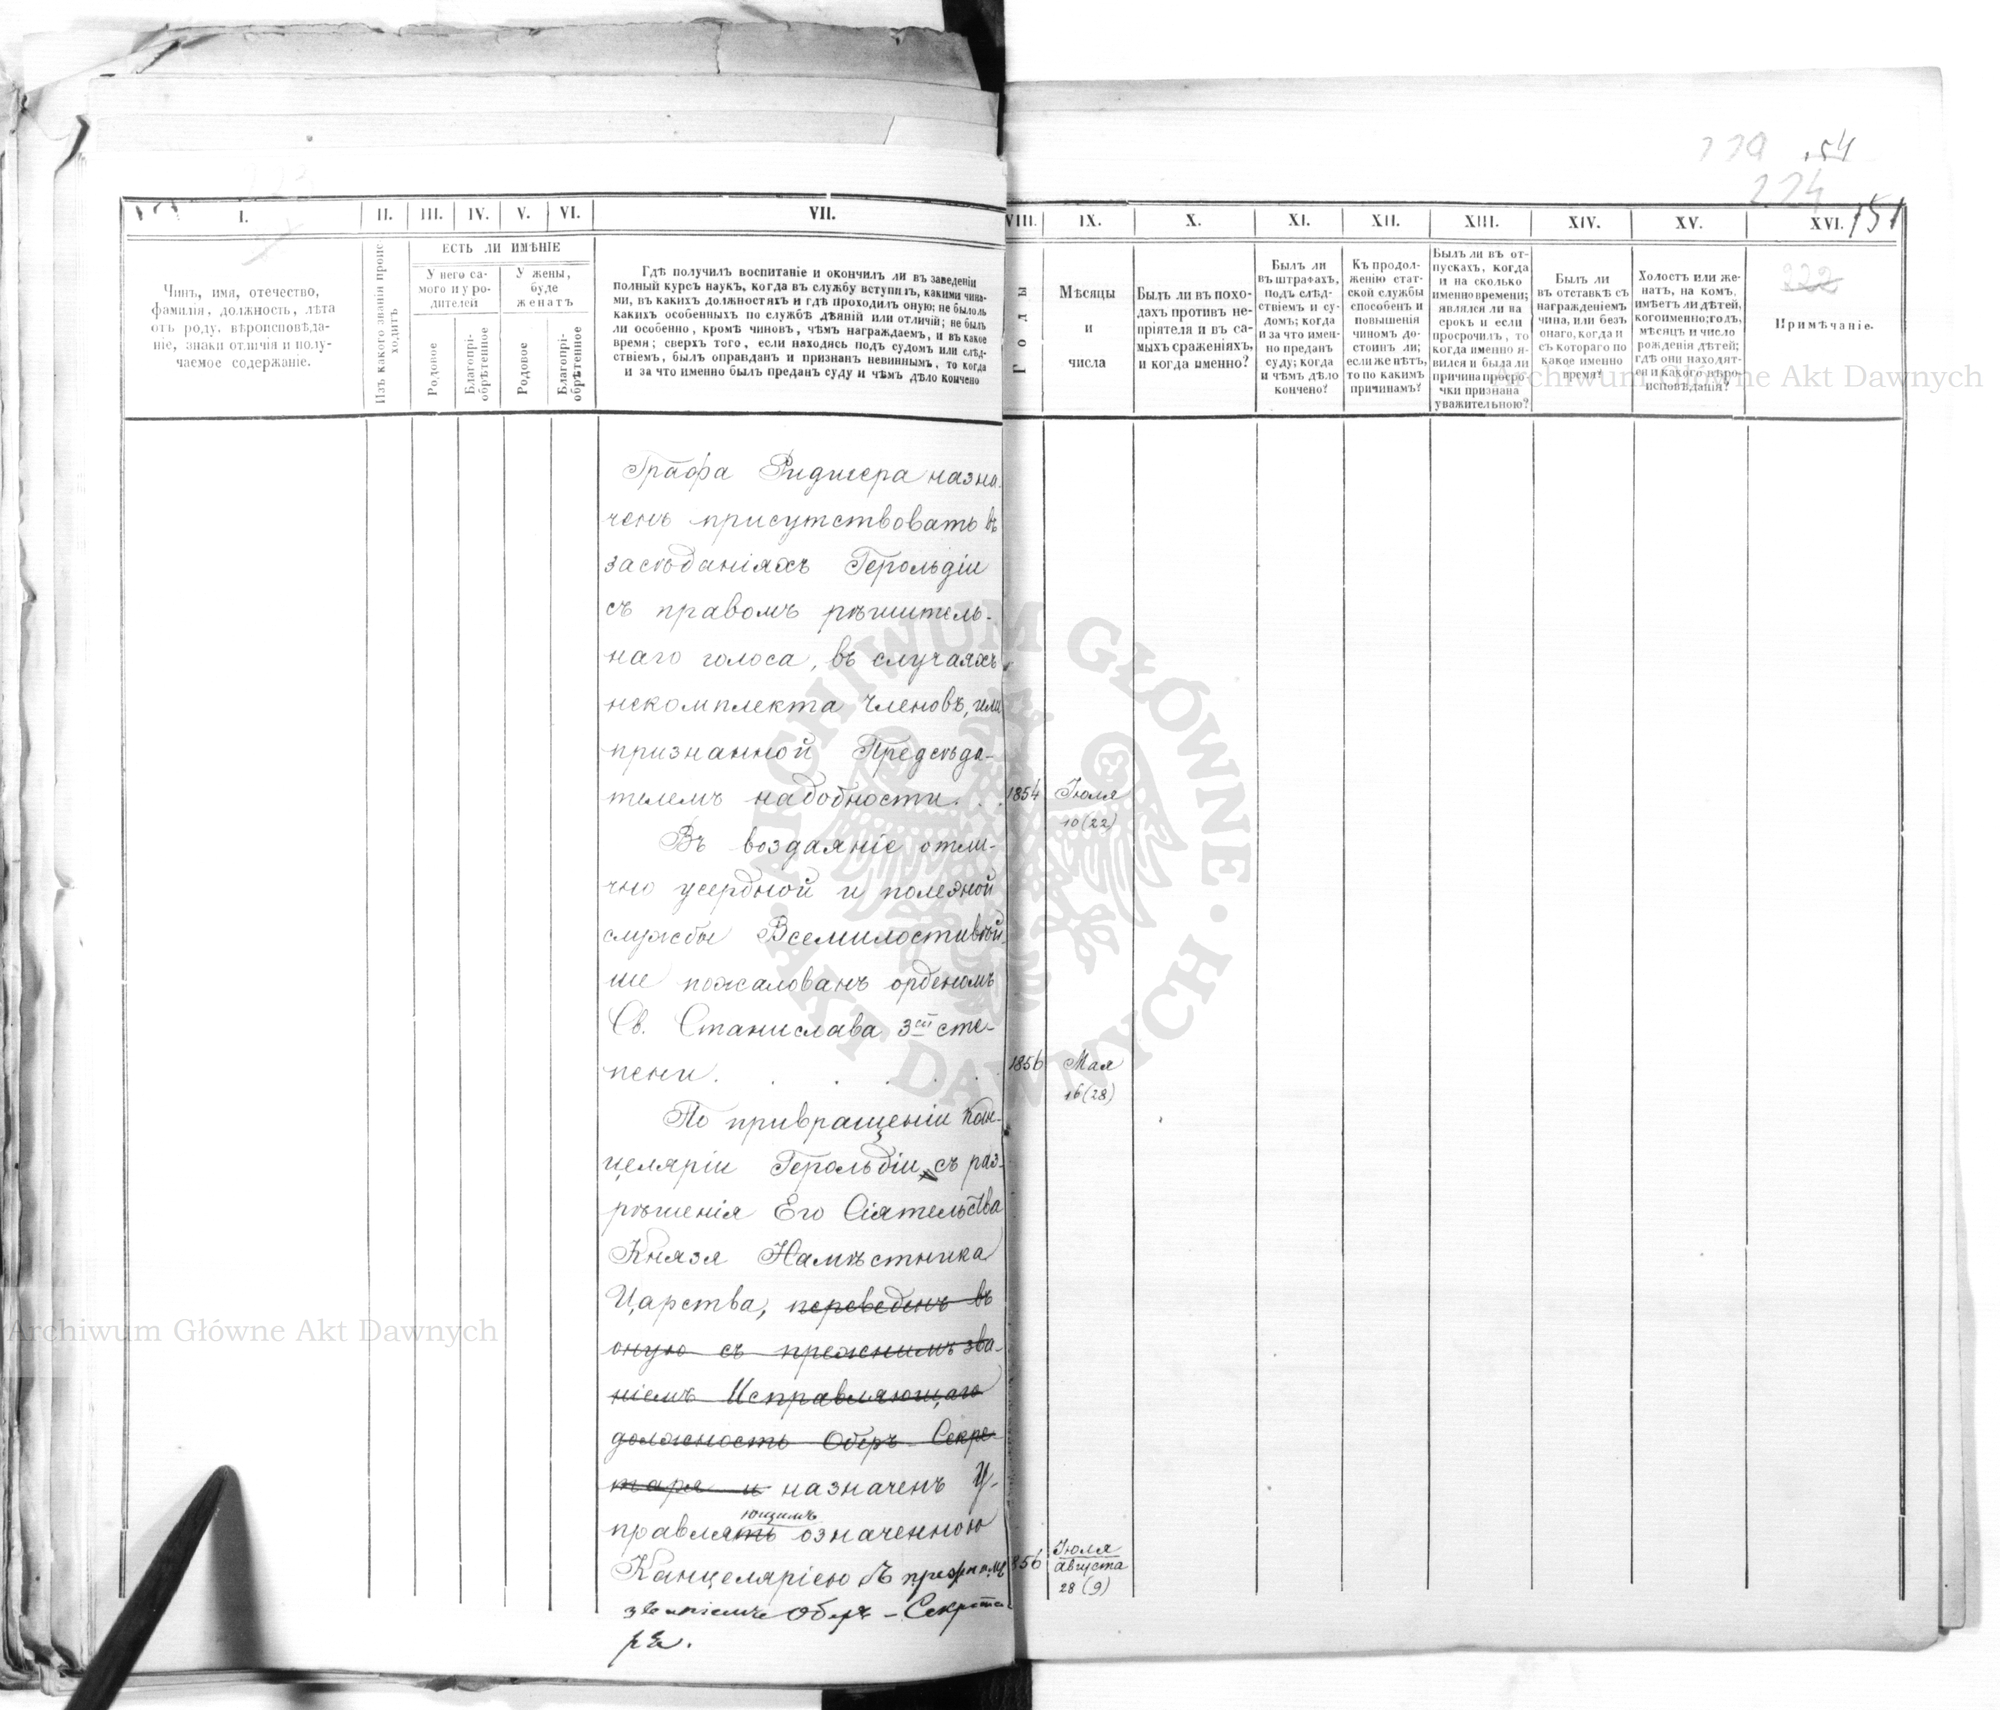 139 54
224
151
I. II. III. IV. V. VI. VII. VIII. IX. X. XI. XII. XIII. XIV. XV. XVI.
222
Чинъ, имя, отечество,
фамилія, должность, лѣта
отъ роду, вѣроисповѣда-
ніе, знаки отличія и полу-
чаемое содержаніе.
Изъ какого званія проис-
ходитъ
ЕСТЬ ЛИ ИМѢНІЕ
У него са-
мого и у ро-
дителей
У жены,
буде
женатъ
Родовое
Благопрі-
обрѣтенное
Родовое
Благопрі-
обрѣтенное
Гдѣ получилъ воспитаніе и окончилъ ли въ заведеніи
полный курсъ наукъ, когда въ службу вступилъ, какими чина-
ми, въ какихъ должностяхъ и гдѣ проходилъ оную; не было ль
какихъ особенныхъ по службѣ дѣяній или отличій; не былъ
ли особенно, кромѣ чиновъ, чѣмъ награждаемъ, и въ какое
время; сверхъ того, если находясь подъ судомъ или слѣд-
ствіемъ, былъ оправданъ и признанъ невиннымъ, то когда
и за что именно былъ преданъ суду и чѣмъ дѣло кончено
Годы
Мѣсяцы
и
числа
Былъ ли въ похо-
дахъ противъ не-
пріятеля и въ са-
мыхъ сраженіяхъ,
и когда именно?
Былъ ли
въ штрафахъ,
подъ слѣд-
ствіемъ и су-
домъ; когда
и за что имен-
но преданъ
суду; когда
и чѣмъ дѣло
кончено?
Къ продол-
женію стат-
ской службы
способенъ и
повышенія
чиномъ до-
стоинъ ли;
если же нѣтъ,
то по какимъ
причинамъ?
Былъ ли въ от-
пускахъ, когда
и на сколько
именно времени;
являлся ли на
срокъ и если
просрочилъ, то
когда именно я-
вился и была ли
причина просро-
чки признана
уважительною?
Былъ ли
въ отставкѣ съ
награжденіемъ
чина, или безъ
онаго, когда и
съ котораго по
какое именно
время?
Холостъ или же-
натъ, на комъ,
имѣетъ ли дѣтей,
кого именно; годъ,
мѣсяцъ и число
рожденія дѣтей;
гдѣ они находят-
ся и какого вѣро-
исповѣданія?
Примѣчаніе.
Archiwum Główne Akt Dawnych
Графа Ридигера назна-
ченъ присутствовать въ
засѣданіяхъ Герольдіи
съ правомъ рѣшитель-
наго голоса, въ случаяхъ
некомплекта членовъ, или
признанной Предсѣда-
телемъ надобности . . . 1854 Іюля
10 (22)
Въ воздаяніе отли-
чно усердной и полезной
службы Всемилостивѣй-
ше пожалованъ орденомъ
Св. Станислава 3ей сте-
пени. . . . . . 1856 Мая
16 (28)
По привращеніи Кан-
целяріи Герольдіи съ раз-
рѣшенія Его Сіятельства
Князя Намѣстника
Царства, переведенъ въ
оную съ прежнимъ зва-
ніемъ Исправляющаго
должность Оберъ Секре-
таря и назначенъ У-
ющимъ
правлять означенною
Канцеляріею съ прежнимъ 856 Іюля
Августа
28 (9)
званіемъ Оберъ-Секрета
ря.
Archiwum Główne Akt Dawnych
ARCHIWUM GŁÓWNE · AKT DAWNYCH ·